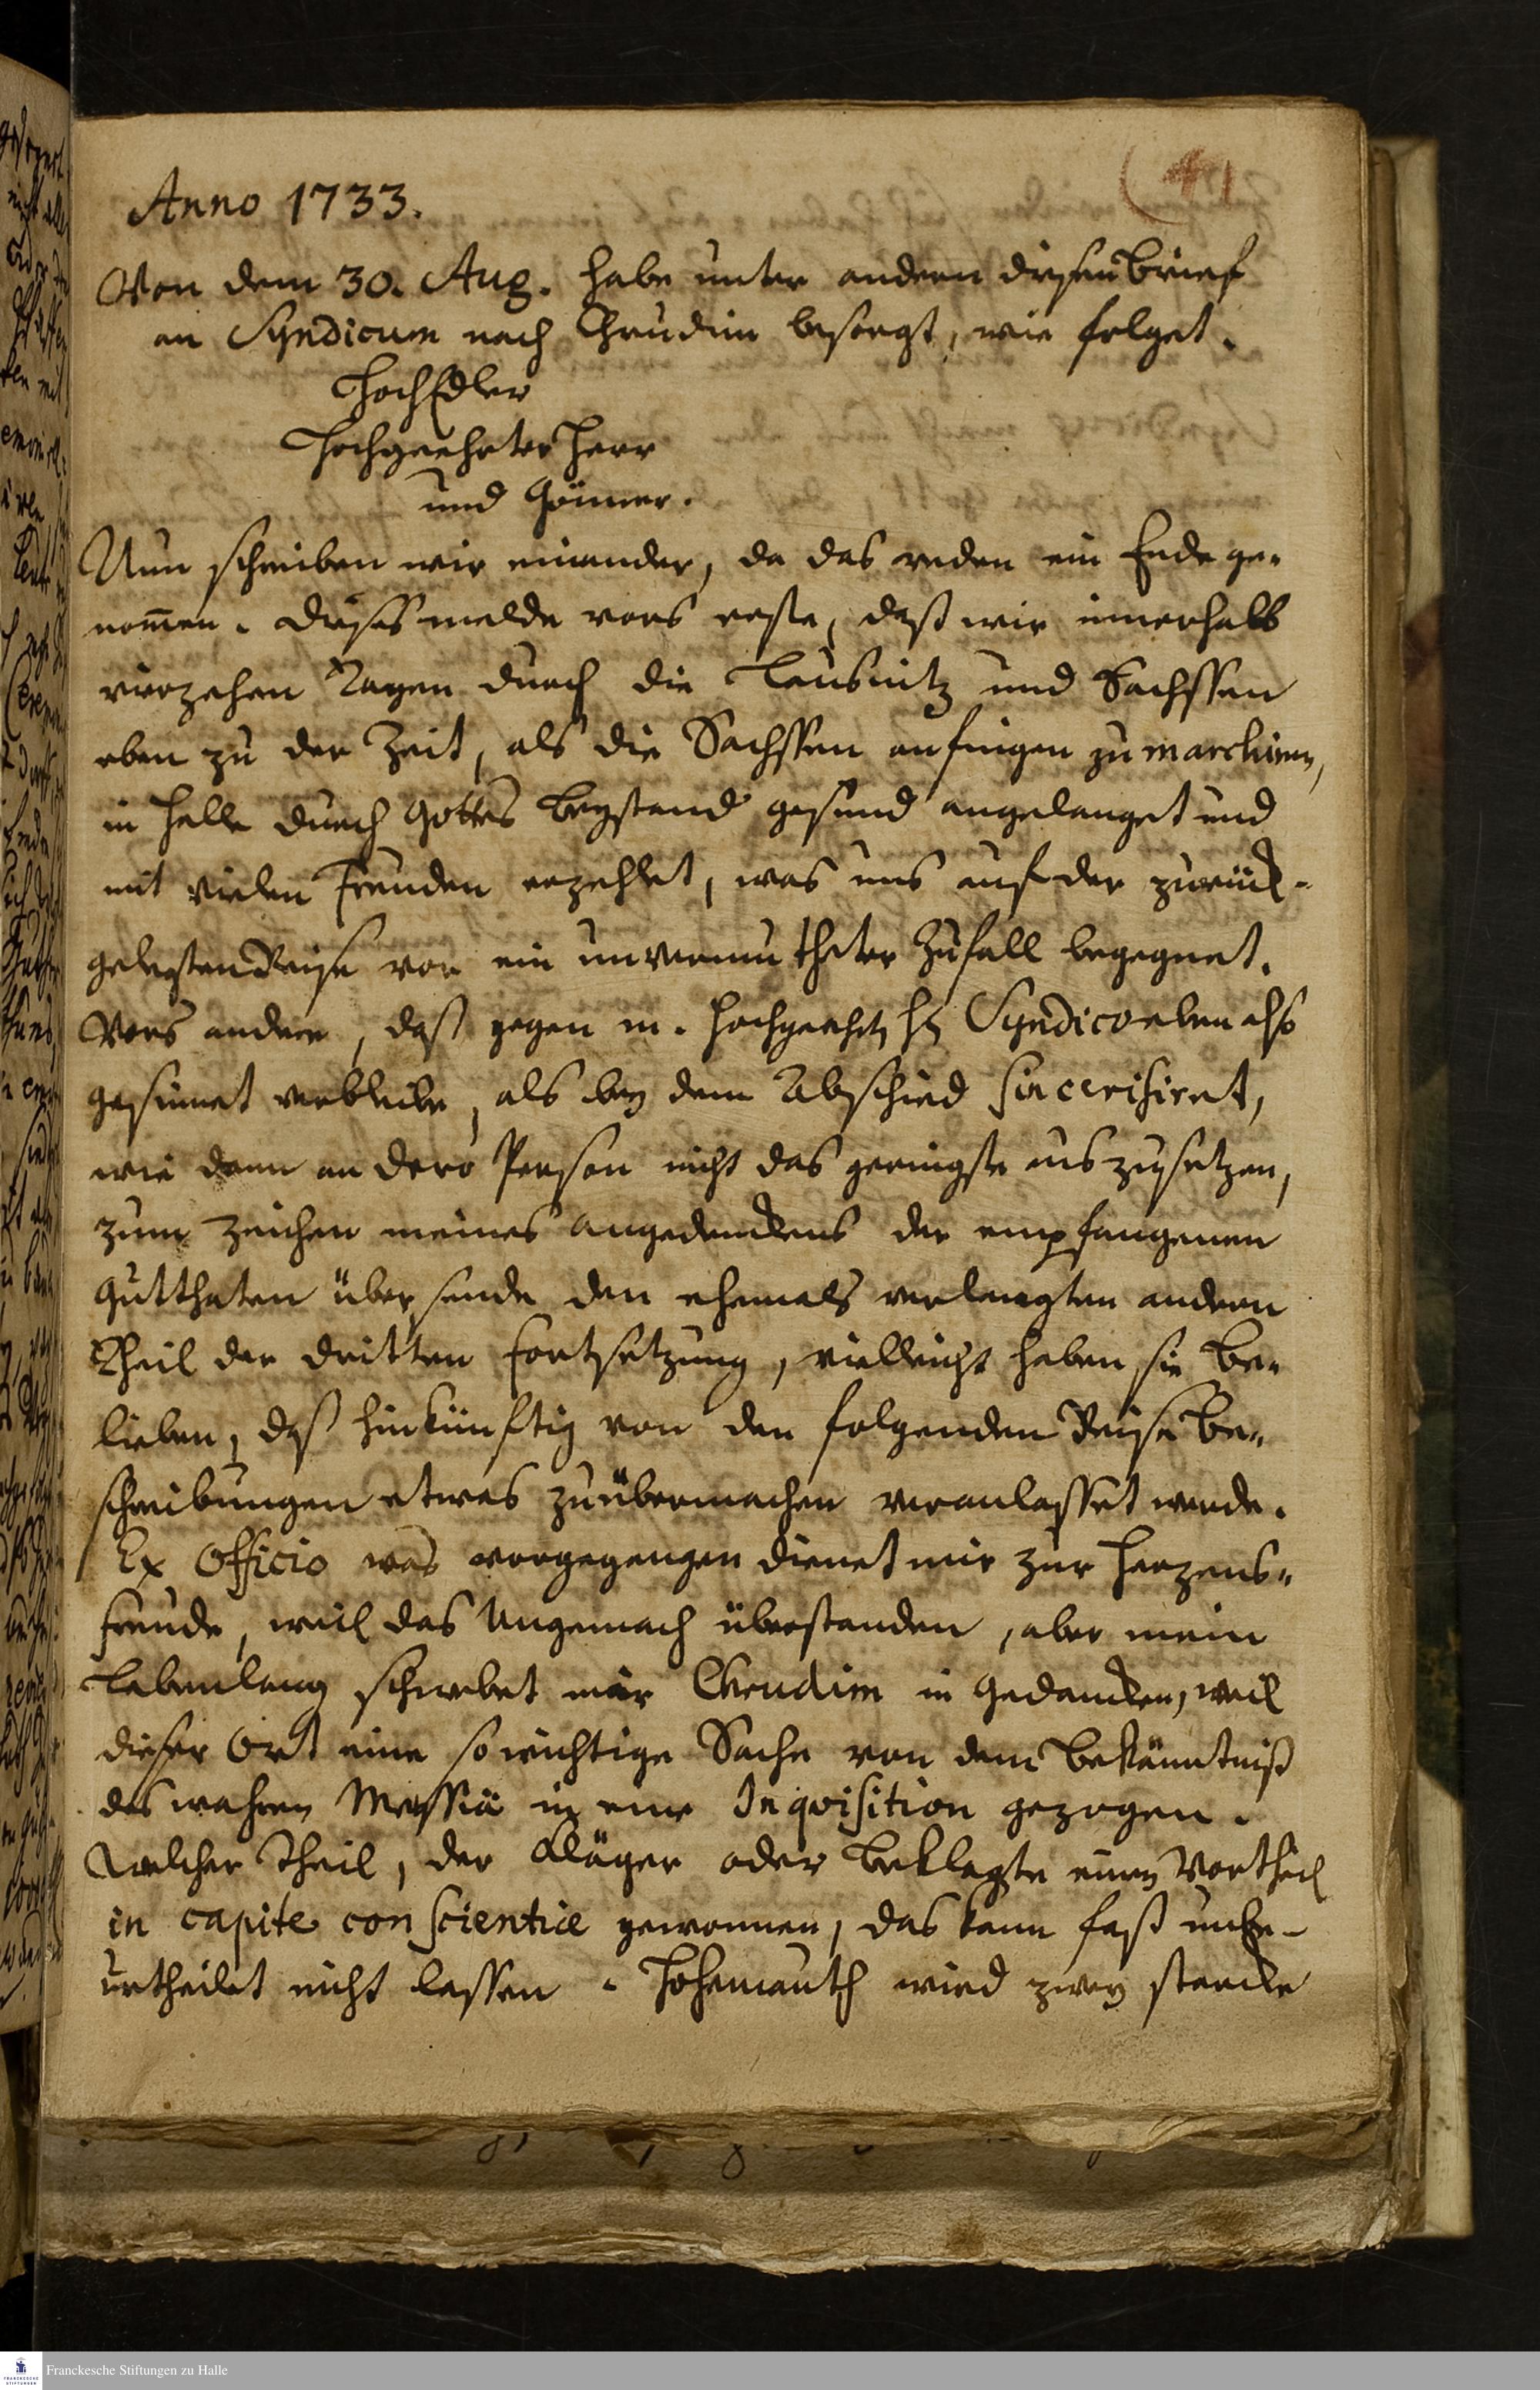 (41
Anno 1733.
Von dem 30. Aug. habe unter andern diesen brief
an Syndicum nach Chrudim besorgt, wie folget.
HochEdler
Hochgeehrter Herr
und Gönner.
Nun schreiben wir einander, da das reden ein Ende ge-
nom̄en. dieses melde vors erste, daß wir innerhalb
vierzehen Tagen durch die Lausnitz und Sachssen
eben zu der Zeit, als die Sachssen anfingen zu marchiren,
in Halle durch Gottes beystand gesund angelanget und
mit vielen Freuden erzehlet, was uns auf der zurück-
gelegten Reise vor ein unvermutheter Zufall begegnet.
Vors andere, daß gegen m. Hochgeehrt H Syndico eben also
gesinnet verbleibe, als bey dem Abschied sincerisiret,
wie dann an dero Person nicht das geringste auszusetzen,
zum zeichen meines angedenckens der empfangenen
gutthaten übersende den ehemals verlangten andern
Theil der dritten Fortsetzung, vielleicht haben sie be-
lieben, daß hinkünftig von den folgenden Reise be-
schreibungen etwas zu übermachen veranlasset werde.
Ex Officio was vorgegangen dienet mir zur Herzens-
freude, weil das Ungemach überstanden, aber mein
Lebenlang schwebet mir Chrudim in Gedancken, weil
dieser Ort eine so wichtige Sache von dem bekänntniß
des wahren Messiä in eine Inqvisition gezogen.
Welcher Theil, der Kläger oder beklagte einen Vortheil
in capite conscientiæ gewonnen, das kann fast unbe-
urtheilet nicht lassen. Hohemauth wird zwey starcke
Franckesche Stiftungen zu Halle